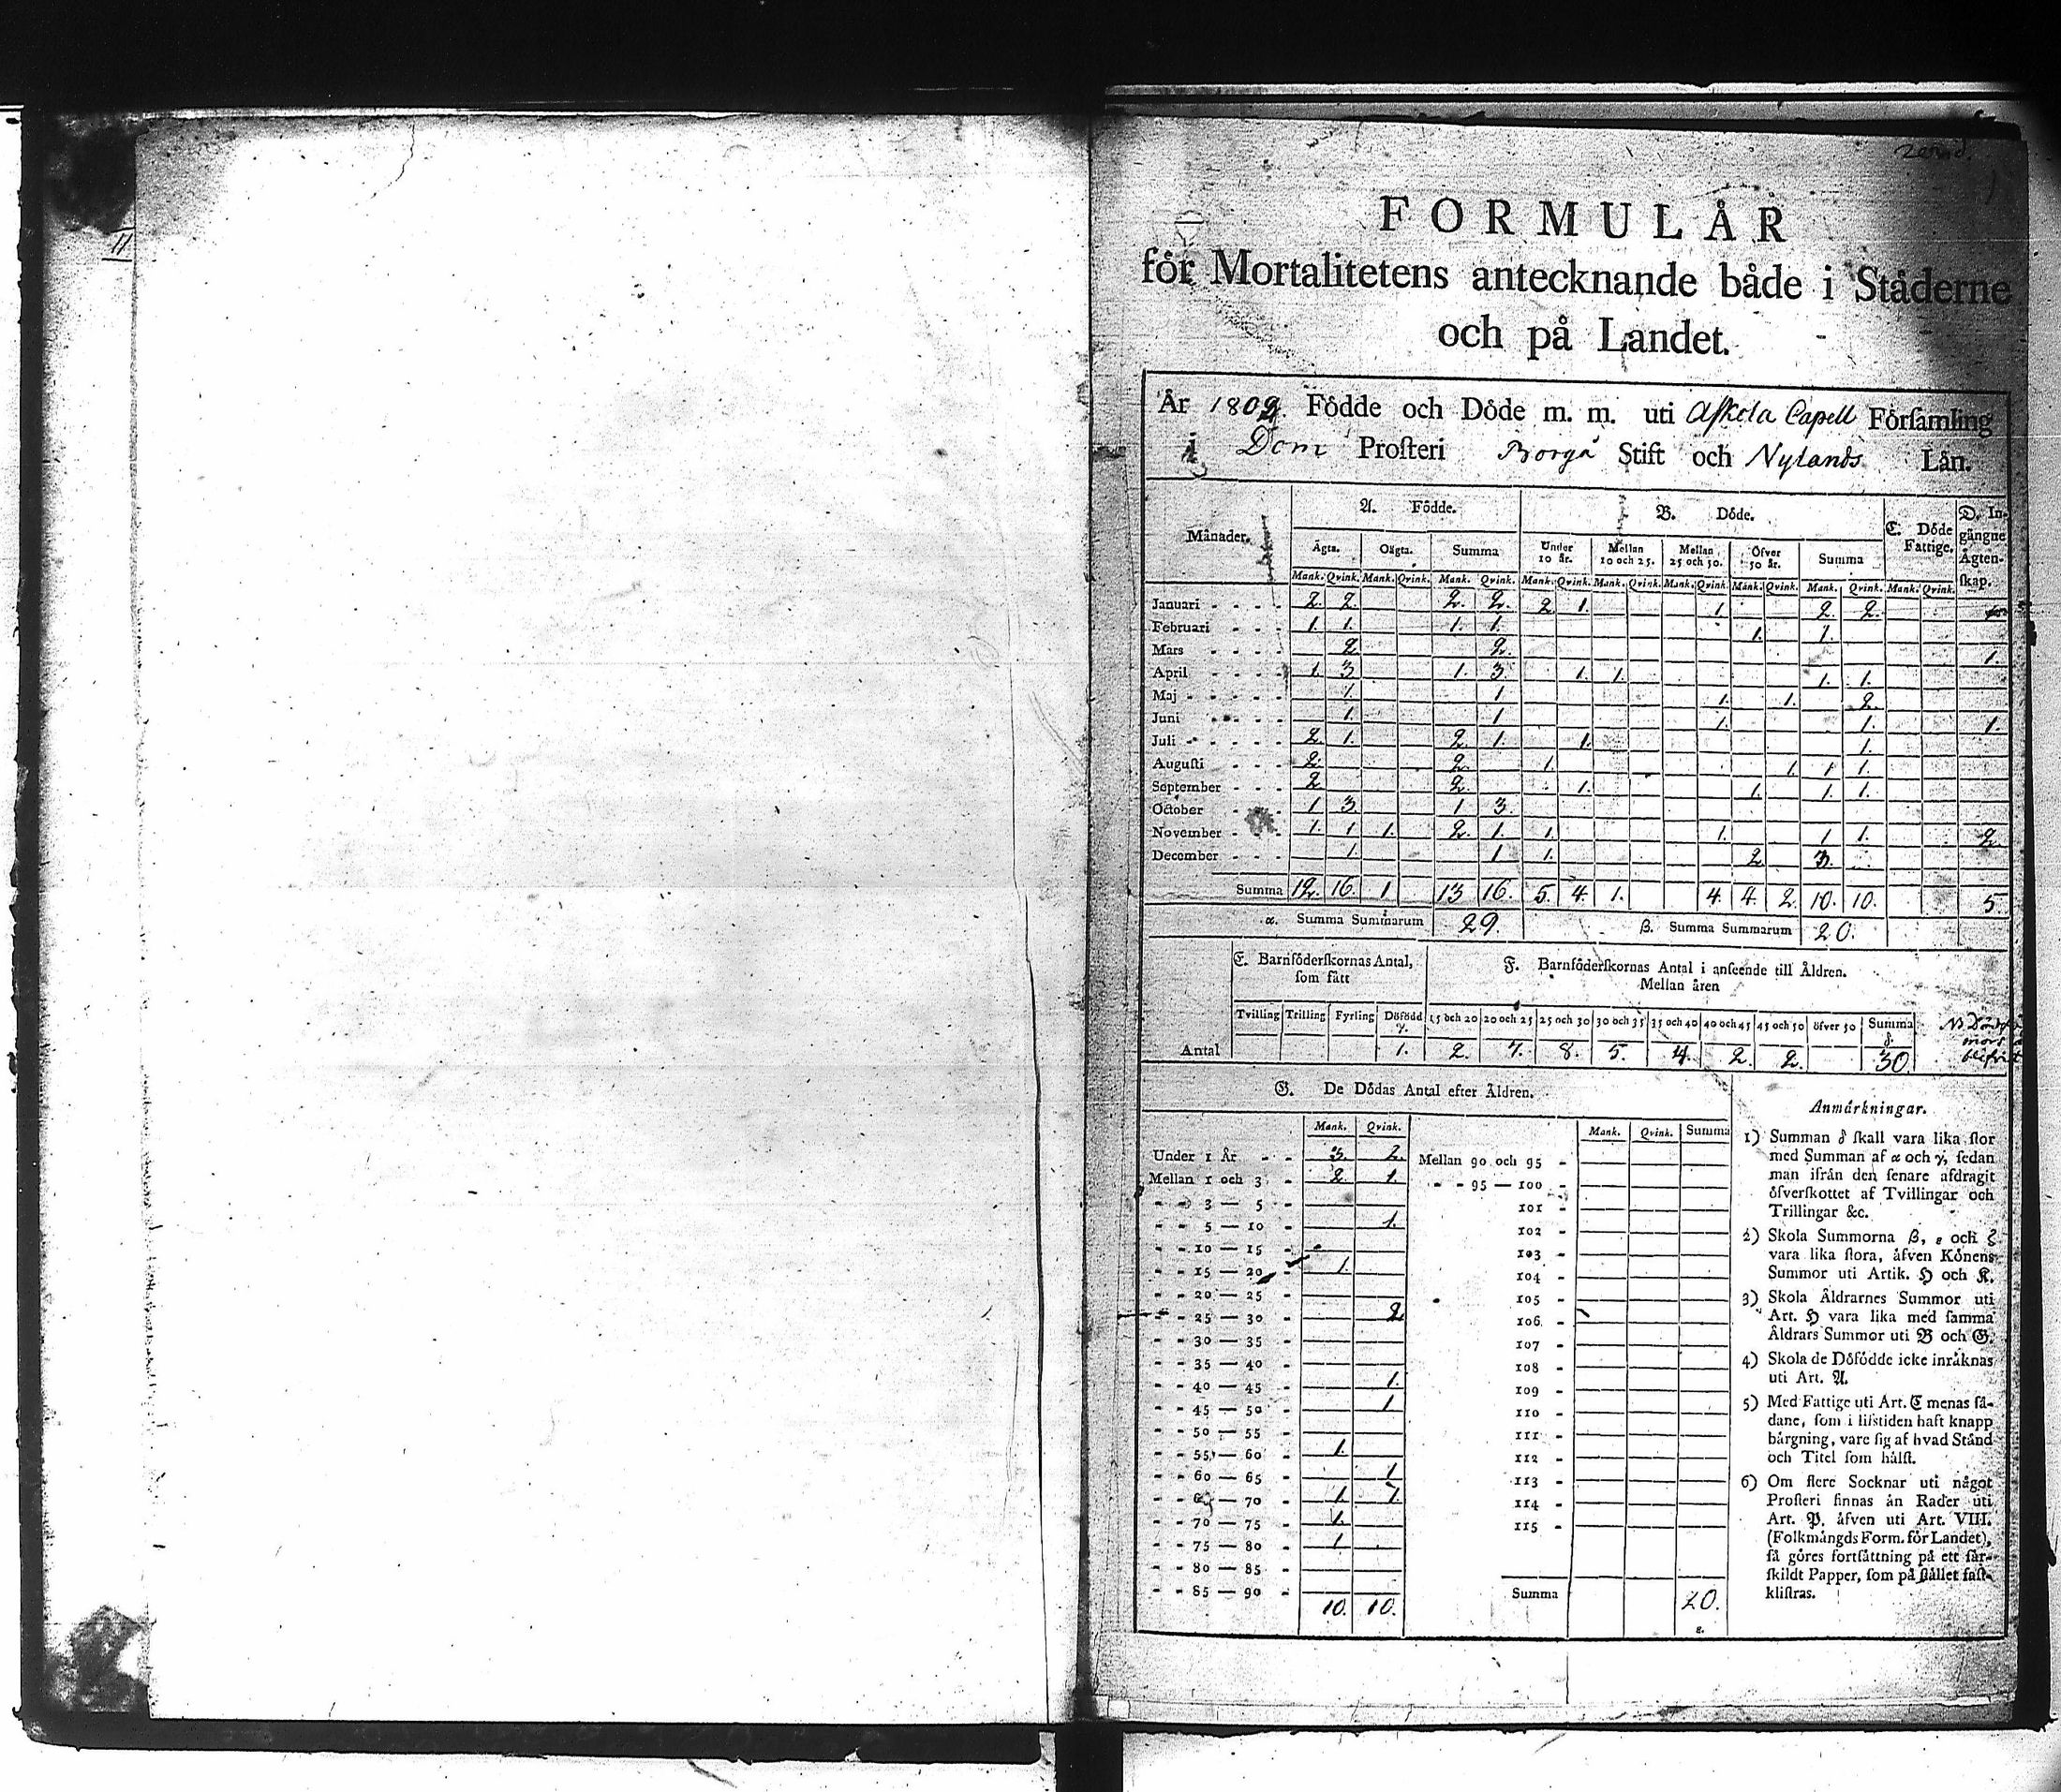 11
FORMULÅR
för Mortalitetens antecknande både i Ståderne
och på Landet.
År 1809 Födde och Döde m. m. uti Askola Capell Församling
i Dom Prosteri Borgå Stift och Nylands Lån.
Månader. A. Födde. B. Döde. C. Döde Fattige. D. Ingångne Ågtenskap.
Ågta. Oågta. Summa Under 10 år. Mellan 10 och 25. Mellan 25 och 50. Öfver 50 år. Summa
Mank. Qvink. Mank. Qvink. Mank. Qvink. Mank. Qvink. Mank. Qvink. Mank. Qvink. Mank. Qvink. Mank. Qvink. Mank. Qvink.
Januari 2. 2. 2. 2. 2 1. 1. 2. 2.
Februari 1. 1. 1. 1. 1. 1.
Mars 2 2. 1.
April 1. 3 1. 3. 1. 1. 1. 1.
Maj 1. 1 1. 1. 2.
Juni 1. 1 1. 1. 1.
Juli 2. 1. 2. 1. 1. 1.
Augusti 2. 2. 1. 1. 1 1.
September 2 2. 1. 1. 1. 1.
October 1 3. 1 3.
November 1. 1 1. 2. 1. 1. 1. 1 1. 2.
December 1. 1 1. 2 3.
Summa 12. 16. 1 13 16. 5. 4. 1. 4. 4. 2. 10. 10. 5.
α. Summa Summarum 29. β. Summa Summarum 20.
E. Barnföderskornas Antal, som fått F. Barnföderskornas Antal i anseende till Åldren.
Mellan åren
Tvilling Trilling Fyrling Döfödd γ. 15 och 20 20 och 25 25 och 30 30 och 35 35 och 40 40 och 45 45 och 50 öfver 50 Summa δ.
Antal 1. 2. 7. 8. 5. 4. 2. 2. 30.
G. De Dödas Antal efter Åldren.
Mank. Qvink. Mank. Qvink. Summa
Under 1 År 3. 2. Mellan 90 och 95
Mellan 1 och 3 2. 1. 95 — 100
3 — 5 101
5 — 10 1. 102
10 — 15 103
15 — 20 1. 104
20 — 25 105
25 — 30 2 106
30 — 35 107
35 — 40 108
40 — 45 1. 109
45 — 50 1 110
50 — 55 111
55 — 60 1. 112
60 — 65 1 113
70 1. 1. 114
70 — 75 1. 115
75 — 80 1
80 — 85
85 — 90
10. 10. Summa 20.
ε.
Anmårkningar.
1) Summan δ skall vara lika stor
med Summan af α och γ, sedan
man ifrån den senare afdragit
öfverskottet af Tvillingar och
Trillingar &c.
2) Skola Summorna β, ε och ζ
vara lika stora, åfven Könens
Summor uti Artik. H och K.
3) Skola Åldrarnes Summor uti
Art. H vara lika med samma
Åldrars Summor uti B och G.
4) Skola de Döfödde icke inråknas
uti Art. A.
5) Med Fattige uti Art. C menas så-
dane, som i lifstiden haft knapp
bårgning, vare sig af hvad Stånd
och Titel som hålst.
6) Om flere Socknar uti något
Prosteri finnas ån Rader uti
Art. P. åfven uti Art. VIII.
(Folkmångds Form. för Landet),
få göres fortsåttning på ett sår-
skildt Papper, som på stållet fast-
klistras.